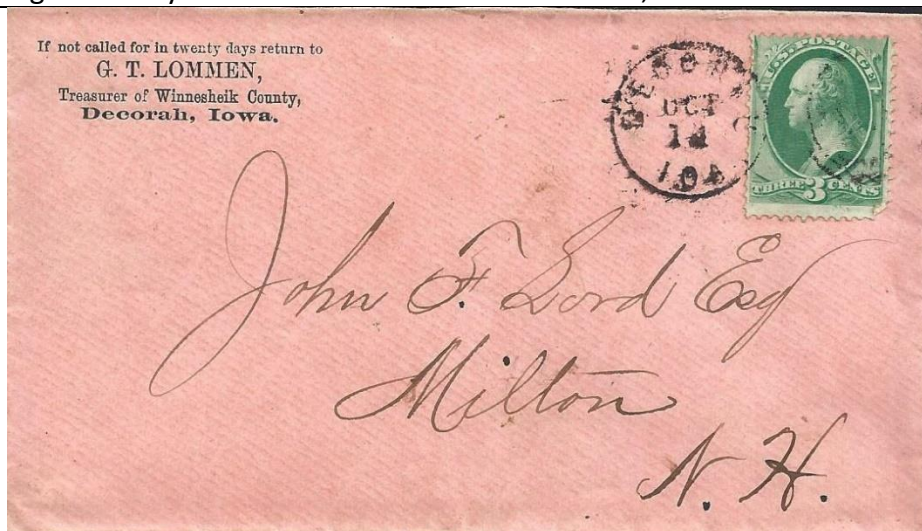 If not called for in twenty days return to
G. T. LOMMEN,
Treasurer of Winnesheik County,
Decorah, Iowa.
DECORAH
OCT
IOA
U.S. POSTAGE
THREE 3 CENTS
John F. Lord Esq
Milton
N. H.